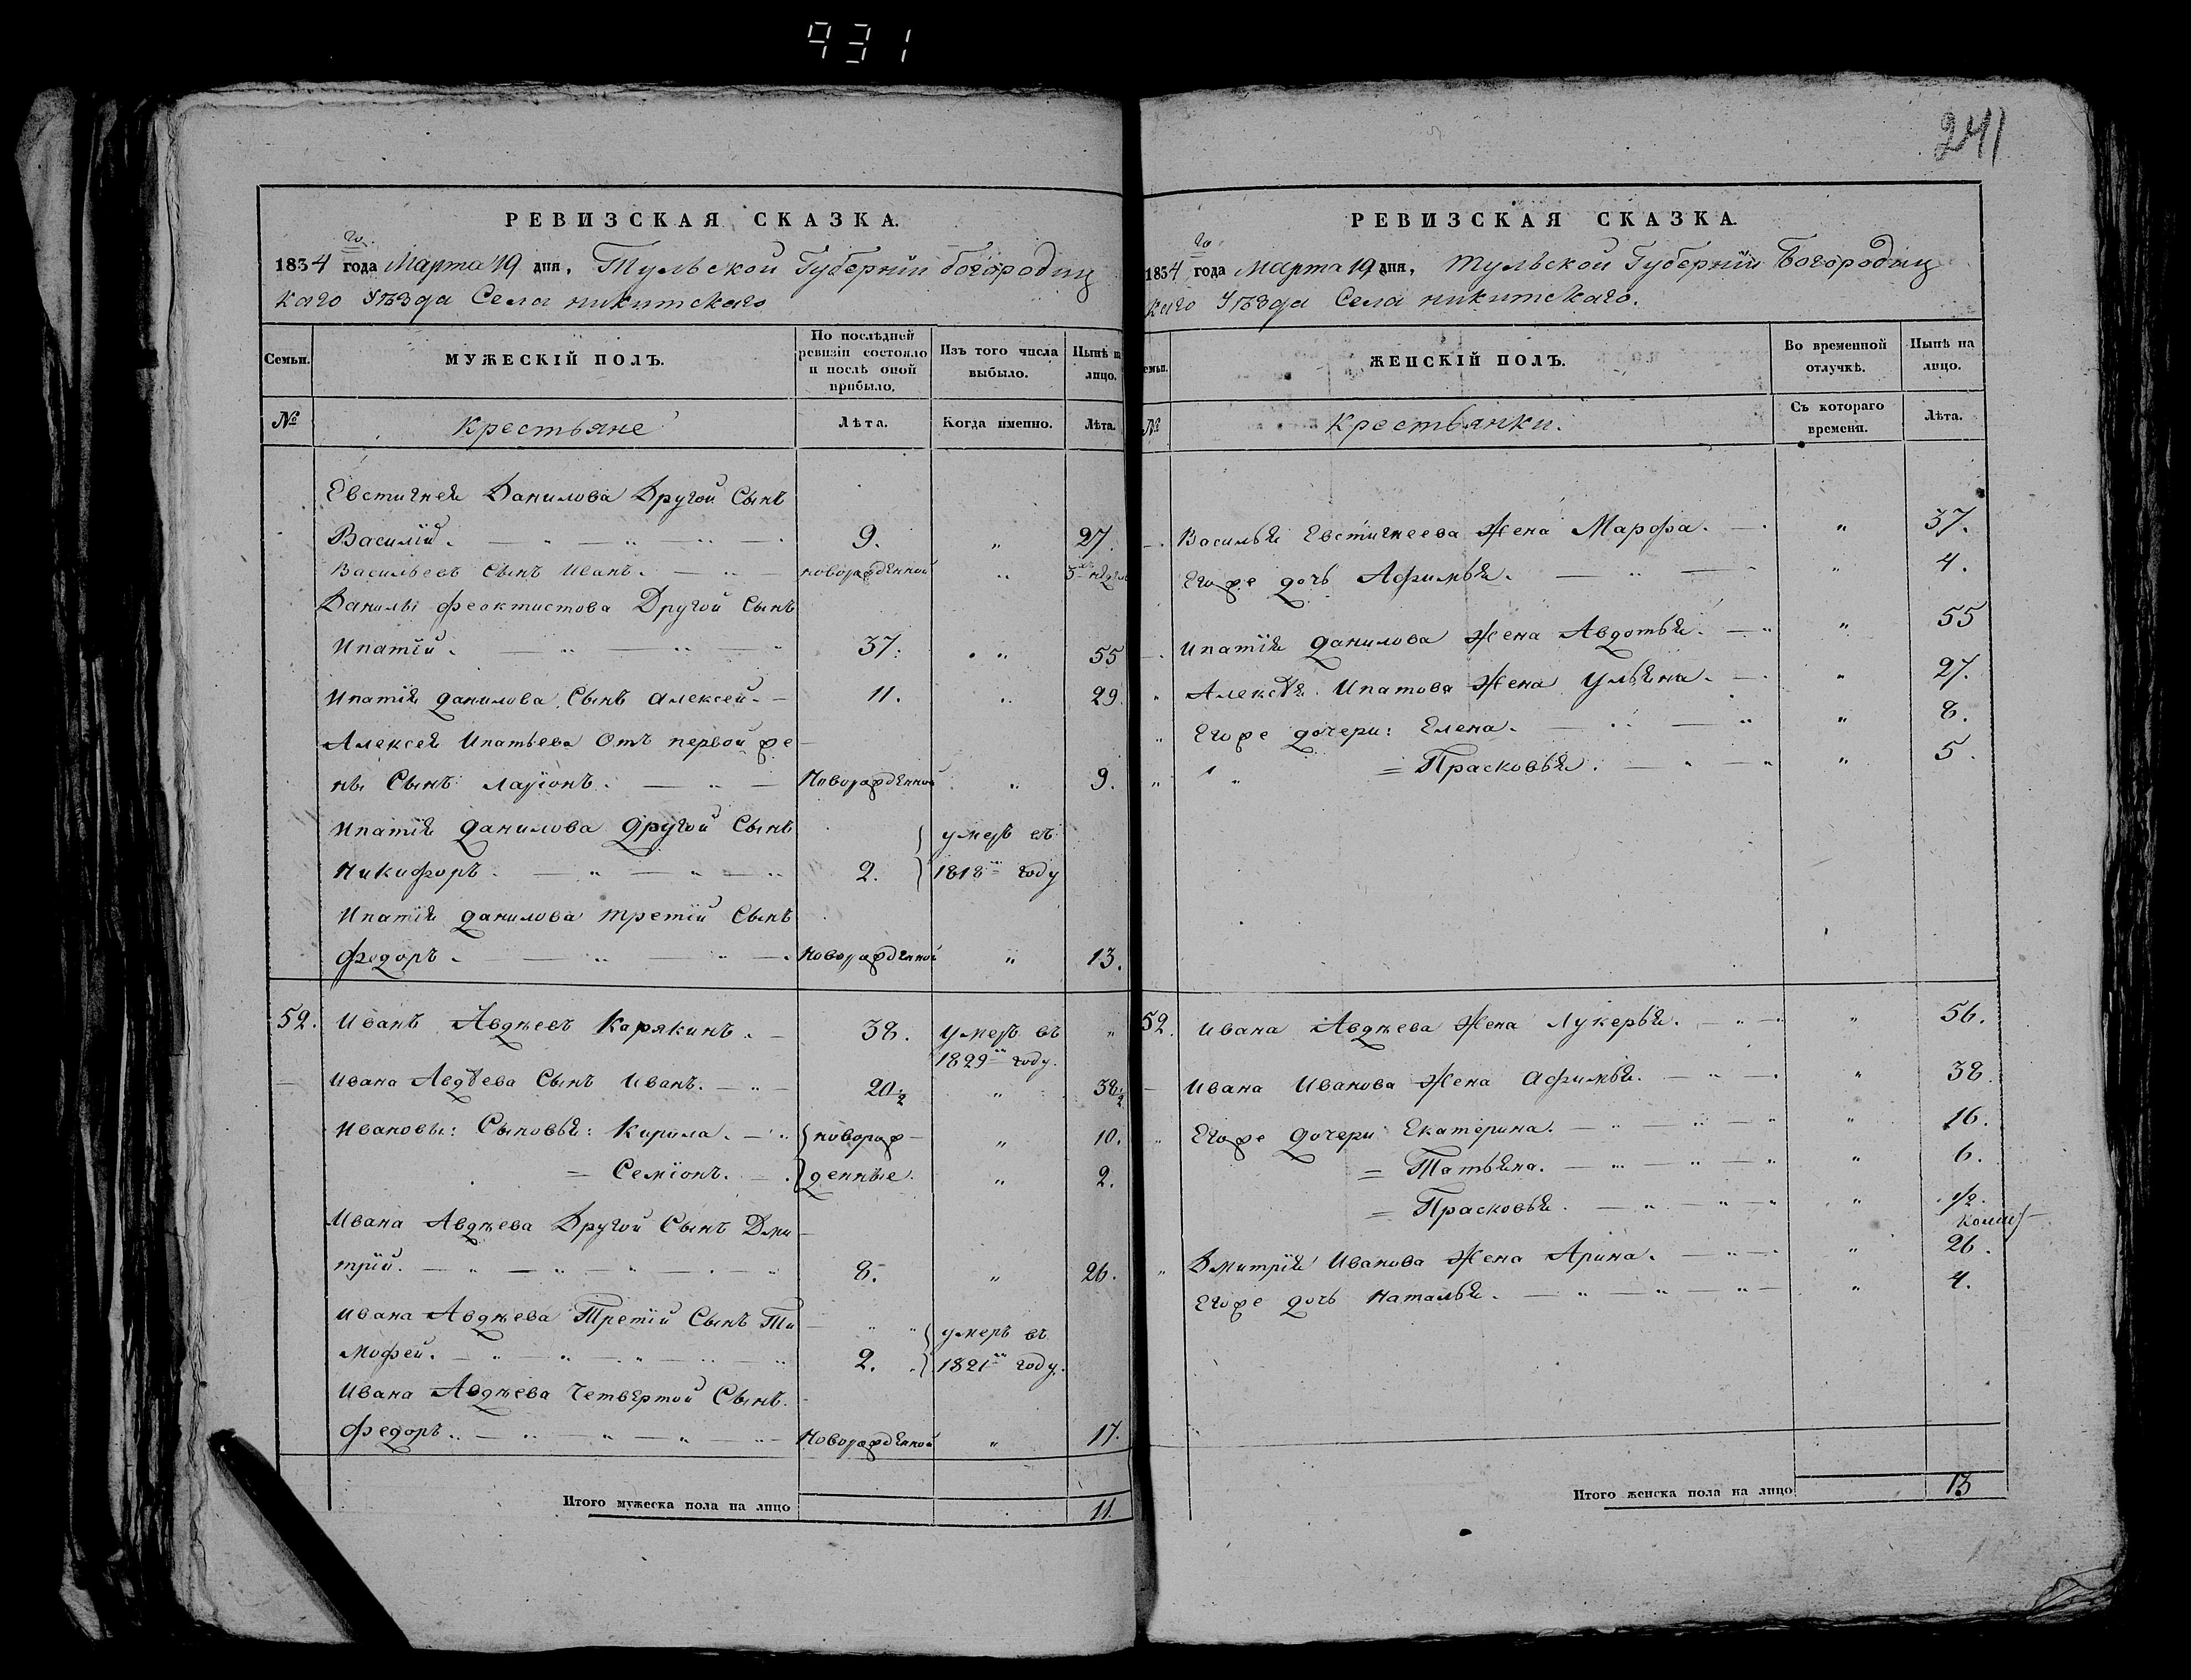 931
241
РЕВИЗСКАЯ СКАЗКА.
го
1834 года Марта 19 дня, Тульской Губерніи Богородиц
каго Уѣзда Села никитскаго
Семьи.
МУЖЕСКІЙ ПОЛЪ.
По послѣдней ревизіи состояло и послѣ оной прибыло.
Изъ того числа выбыло.
Нынѣ на лицо.
№
Крестьяне
Лѣта.
Когда именно.
Лѣта.
Евстигнея Данилова Другой Сынъ
Василій. 9. „ 27.
Васильевъ Сынъ Иванъ. новорожденной „
Данилы феоктистова Другой Сынъ
Ипатій. 37. „ 55
Ипатія данилова Сынъ алексей. 11. „ 29.
Алексея Ипатьева Отъ первой же
ны Сынъ ларіонъ. Новорожденной „ 9.
Ипатія данилова другой Сынъ умеръ въ
Никифоръ. 2. 1818м году
Ипатія данилова третій Сынъ
федоръ. Новорожденной „ 13.
52. Иванъ Авдѣевъ Карякинъ. 38. умеръ въ „
1829м году.
Ивана Авдѣева Сынъ Иванъ. 20½ „ 38½
Ивановы: Сыновья: Кирила. новорож- „ 10.
= Семіонъ. денные. „ 2.
Ивана Авдѣева Другой Сынъ Дми
трій. 8. „ 26.
Ивана Авдѣева Третій Сынъ Ти умеръ въ
мофей. 2. 1821м году.
Ивана Авдѣева Четвертой Сынъ.
федоръ. Новорожденной „ 17.
Итого мужеска пола на лицо 11.
РЕВИЗСКАЯ СКАЗКА.
го
1834 года Марта 19 дня, Тульской Губерніи Богородиц
каго Уѣзда Села никитскаго.
Семьи.
ЖЕНСКІЙ ПОЛЪ.
Во временной отлучкѣ.
Нынѣ на лицо.
№
Крестьянки.
Съ котораго времени.
Лѣта.
Василья Евстигнеева Жена Марфа. „ 37.
Егоже дочь Афимья. „ 4.
Ипатія данилова Жена Авдотья. „ 55
„ Алексѣя Ипатова Жена Ульяна. „ 27.
„ Егоже дочери: Елена. „ 8.
„ „ = Прасковья. „ 5.
52. Ивана Авдѣева Жена Лукерья. „ 56.
Ивана Иванова Жена Афимья. „ 38.
„ Егоже дочери Екатерина. „ 16.
= Татьяна. „ 6.
= Прасковья. „ ½.
„ Дмитрія Иванова Жена Арина. „ 26.
Егоже дочь наталья. „ 4.
Итого женска пола на лицо 13